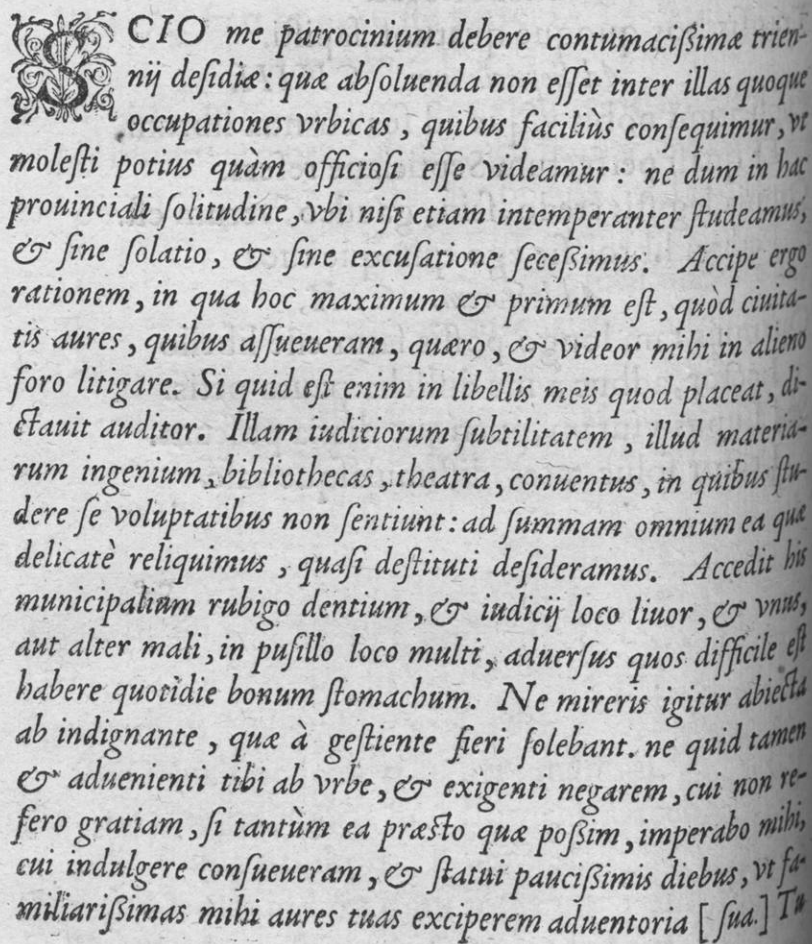 SCIO me patrocinium debere contumacißimæ trien-
nij deſidiæ: quæ abſoluenda non eſſet inter illas quoque
occupationes vrbicas, quibus faciliùs conſequimur, vt
moleſti potius quàm officioſi eſſe videamur: ne dum in hac
prouinciali ſolitudine, vbi niſi etiam intemperanter ſtudeamus,
& ſine ſolatio, & ſine excuſatione ſeceßimus. Accipe ergo
rationem, in qua hoc maximum & primum eſt, quòd ciuita-
tis aures, quibus aſſueueram, quæro, & videor mihi in alieno
foro litigare. Si quid eſt enim in libellis meis quod placeat, di-
ctauit auditor. Illam iudiciorum ſubtilitatem, illud materia-
rum ingenium, bibliothecas, theatra, conuentus, in quibus ſtu-
dere ſe voluptatibus non ſentiunt: ad ſummam omnium ea quæ
delicatè reliquimus, quaſi deſtituti deſideramus. Accedit his
municipalium rubigo dentium, & iudicij loco liuor, & vnus,
aut alter mali, in puſillo loco multi, aduerſus quos difficile eſt
habere quotidie bonum ſtomachum. Ne mireris igitur abiecta
ab indignante, quæ à geſtiente fieri ſolebant. ne quid tamen
& aduenienti tibi ab vrbe, & exigenti negarem, cui non re-
fero gratiam, ſi tantùm ea præſto quæ poßim, imperabo mihi,
cui indulgere conſueueram, & ſtatui paucißimis diebus, vt fa-
miliarißimas mihi aures tuas exciperem aduentoria [ſua.] Tu